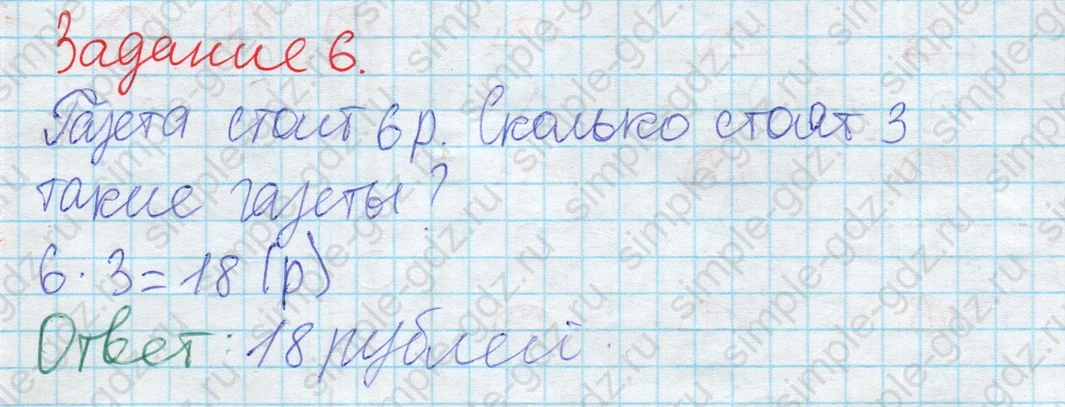 Задание 6.
Газета стоит 6 р. Сколько стоят 3
такие газеты?
6 · 3 = 18 (р)
Ответ: 18 рублей.